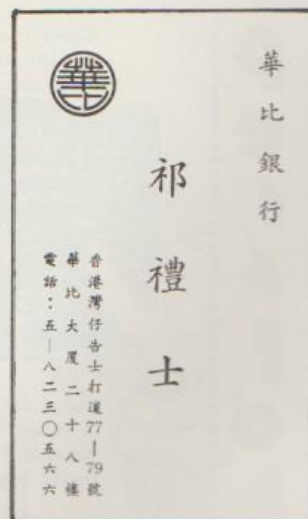 華比銀行
華比
祁禮士
香港灣仔告士打道77—79號
華比大厦二十八樓
電話：五—八二三〇五六六